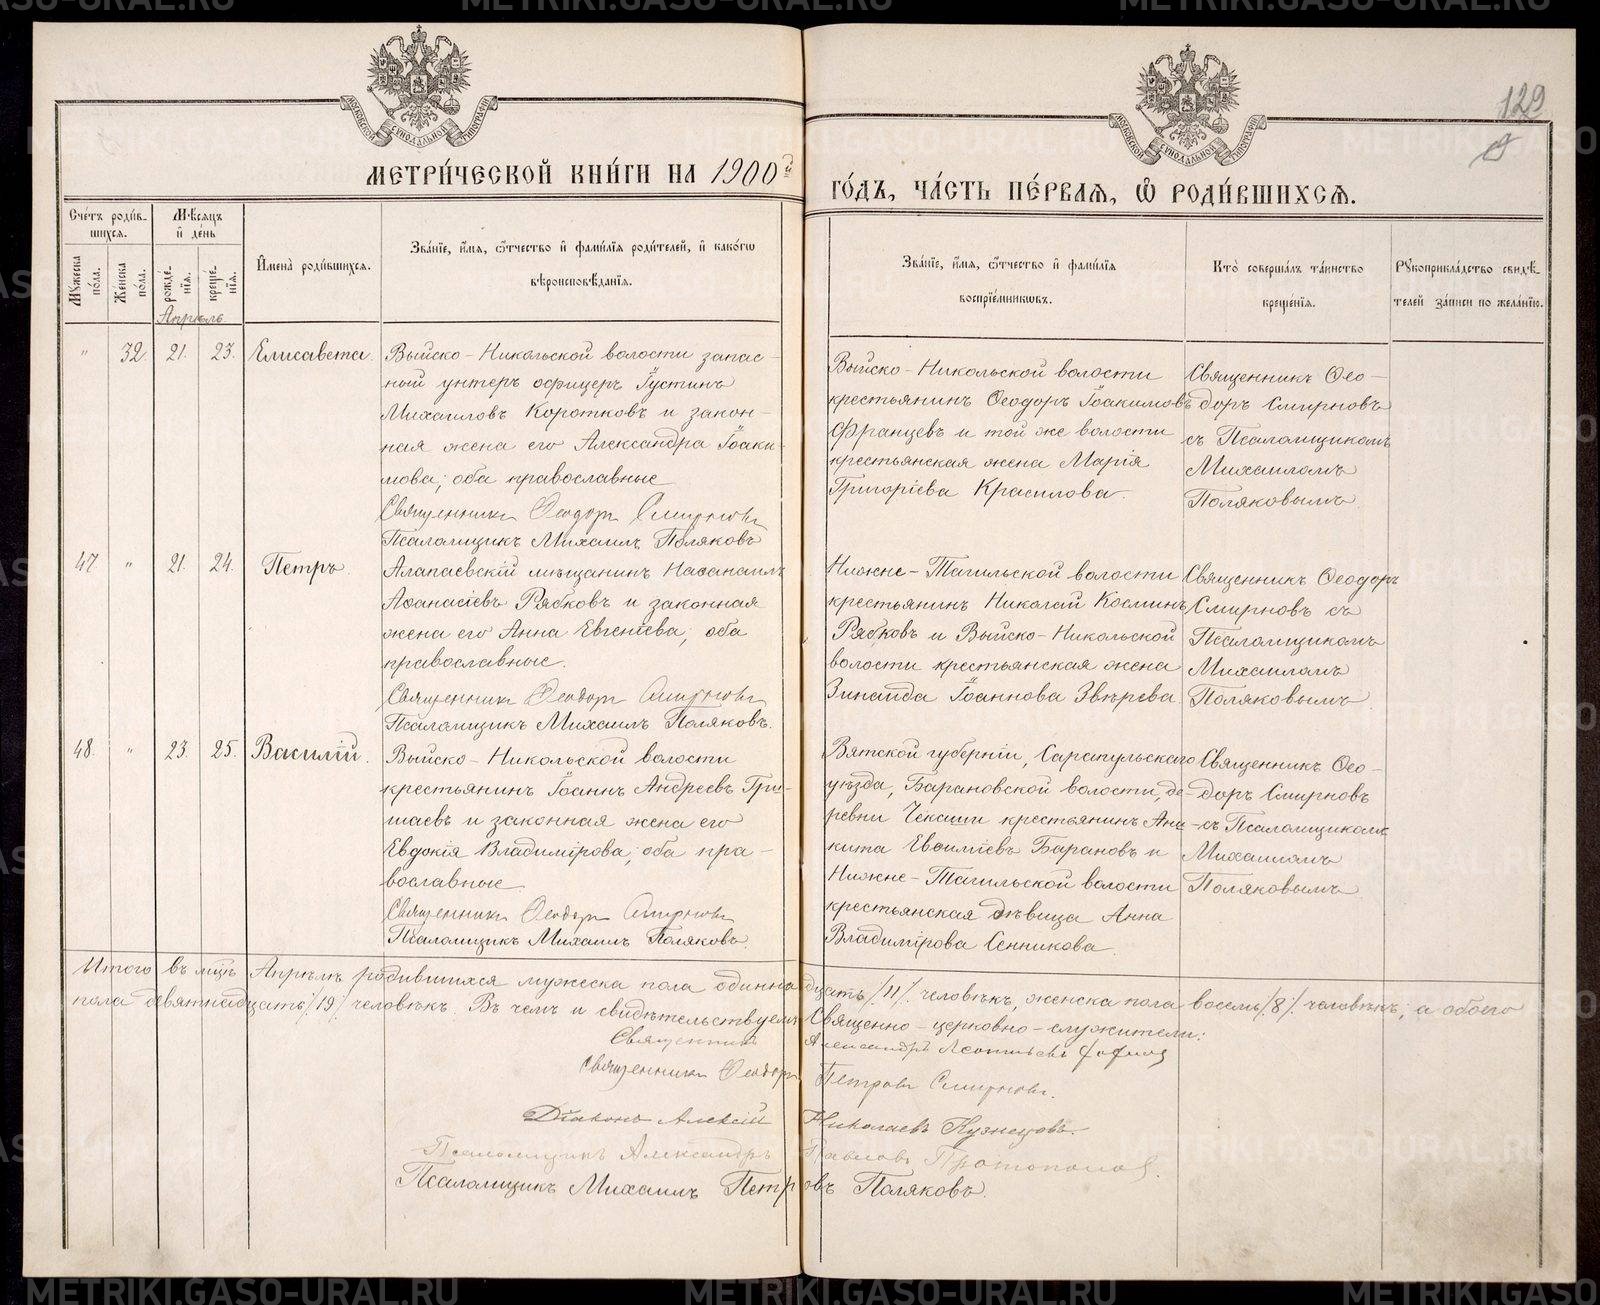 129
МОСКОВСКОЙ СѴНОДАЛЬНОЙ ТИПОГРАФІИ
МОСКОВСКОЙ СѴНОДАЛЬНОЙ ТИПОГРАФІИ
МЕТРИ́ЧЕСКОЙ КНИ́ГИ НА 1900й
ГО́ДЪ, ЧА́СТЬ ПЕ́РВАѦ, Ѡ РОДИ́ВШИХСѦ.
Сче́тъ роди́в-
шихсѧ.
Мꙋжеска по́ла.
Же́нска по́ла.
Мѣ́сѧцъ и де́нь
рожде́-
нїѧ.
креще́-
нїѧ.
Апрѣль
И҆мена̀ роди́вшихсѧ.
Зва́нїе, и҆́мѧ, ѻ҆́тчество и҆ фами́лїѧ роди́телей, и҆ како́гѡ
вѣроисповѣ́данїѧ.
Зва́нїе, и҆́мѧ, ѻ҆́тчество и҆ фами́лїѧ
воспрїе́мникѡвъ.
Кто̀ соверша́лъ та́инство
креще́нїѧ.
Рꙋкоприкла́дство свидѣ́-
телей за́писи по жела́нїю.
" 32. 21. 23. Елисавета.
Выйско-Никольской волости запас-
ный унтеръ офицеръ Іустинъ
Михаиловъ Коротковъ и закон-
ная жена его Александра Іоаки-
мова; оба православные
Священникъ Ѳеодоръ Смирновъ
Псаломщикъ Михаилъ Поляковъ
Выйско-Никольской волости
крестьянинъ Ѳеодоръ Іоакимовъ
Францевъ и той же волости
крестьянская жена Марія
Григоріева Красилова.
Священникъ Ѳео-
доръ Смирновъ
съ Псаломщикомъ
Михаиломъ
Поляковымъ
47 " 21. 24. Петръ.
Алапаевскій мѣщанинъ Наѳанаилъ
Аѳанасіевъ Рябковъ и законная
жена его Анна Евгеніева; оба
православные.
Священникъ Ѳеодоръ Смирновъ
Псаломщикъ Михаилъ Поляковъ.
Нижне-Тагильской волости
крестьянинъ Николай Косминъ
Рябковъ и Выйско-Никольской
волости крестьянская жена
Зинаида Іоаннова Звѣрева
Священникъ Ѳеодоръ
Смирновъ съ
Псаломщикомъ
Михаиломъ
Поляковымъ
48. " 23. 25. Василій.
Выйско-Никольской волости
крестьянинъ Іоаннъ Андреевъ Гри-
шаевъ и законная жена его
Евдокія Владимірова; оба пра-
вославные
Священникъ Ѳеодоръ Смирновъ
Псаломщикъ Михаилъ Поляковъ.
Вятской губерніи, Сарапульскаго
уѣзда, Барановской волости, де-
ревни Чекаши крестьянинъ Ани-
кита Евѳиміевъ Барановъ и
Нижне-Тагильской волости
крестьянская дѣвица Анна
Владимірова Сенникова
Священникъ Ѳео-
доръ Смирновъ
съ Псаломщикомъ
Михаиломъ
Поляковымъ
Итого въ м-цѣ Апрѣлѣ родившихся мужеска пола одиннадцать /11/ человѣкъ, женска пола восемь /8/ человѣкъ; а обоего
пола девятнадцать /19/ человѣкъ. Въ чемъ и свидѣтельствуемъ Священно-церковно-служители:
Священникъ Александръ Леонтьевъ
Священникъ Ѳеодоръ Петровъ Смирновъ.
Діаконъ Алексій Николаевъ Кузнецовъ.
Псаломщикъ Александръ Павловъ Протопоповъ.
Псаломщикъ Михаилъ Петровъ Поляковъ.
METRIKI.GASO-URAL.RU